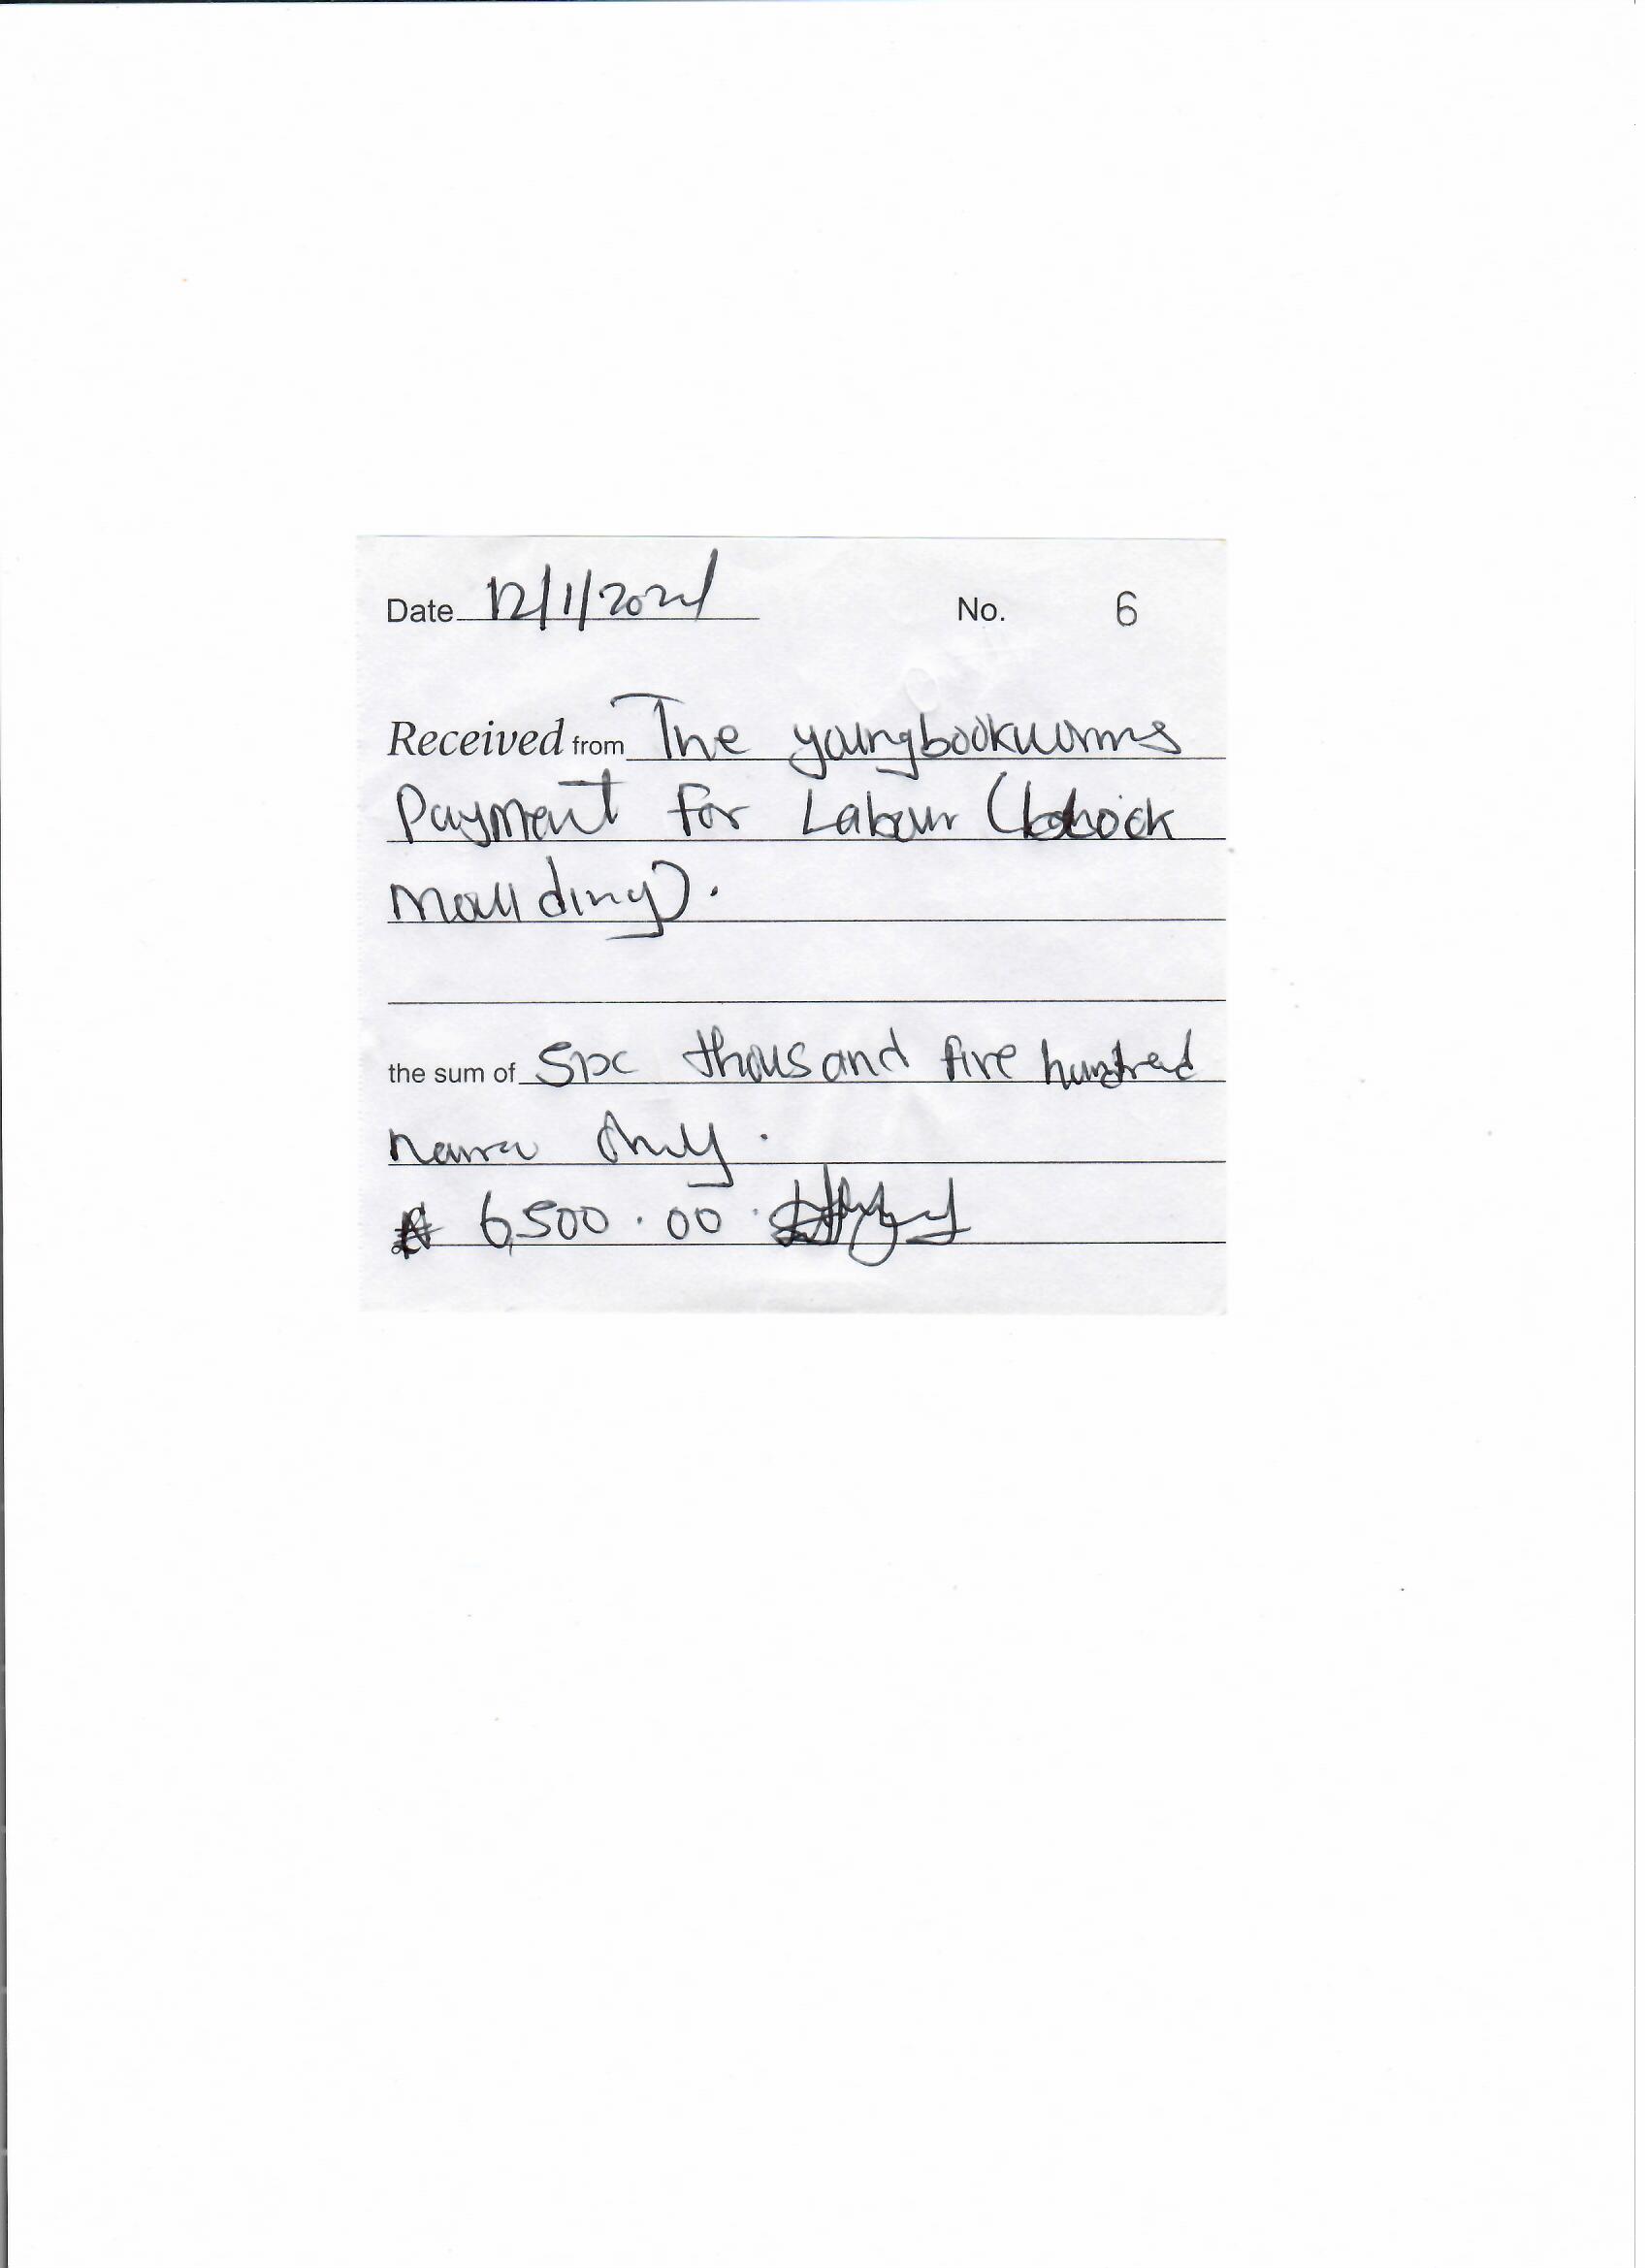 Date 12/1/2021 No. 6
Received from The youngbookworms
Payment for Labour (block
moulding).
the sum of Six thousand five hundred
naira only.
₦ 6,500.00.